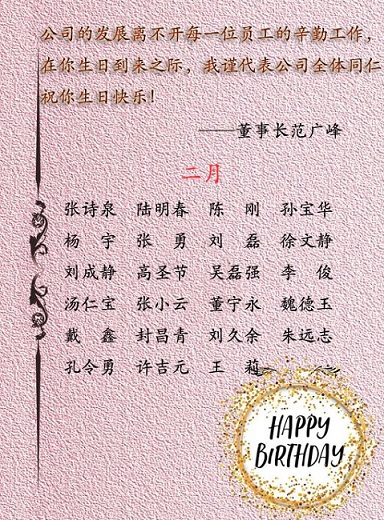 公司的发展离不开每一位员工的辛勤工作，
在你生日到来之际，我谨代表公司全体同仁
祝你生日快乐！
——董事长范广峰
二月
张诗泉 陆明春 陈 刚 孙宝华
杨 宇 张 勇 刘 磊 徐文静
刘成静 高圣节 吴磊强 李 俊
汤仁宝 张小云 董宁永 魏德玉
戴 鑫 封昌青 刘久余 朱远志
孔令勇 许吉元 王 莉
HAPPY
BIRTHDAY